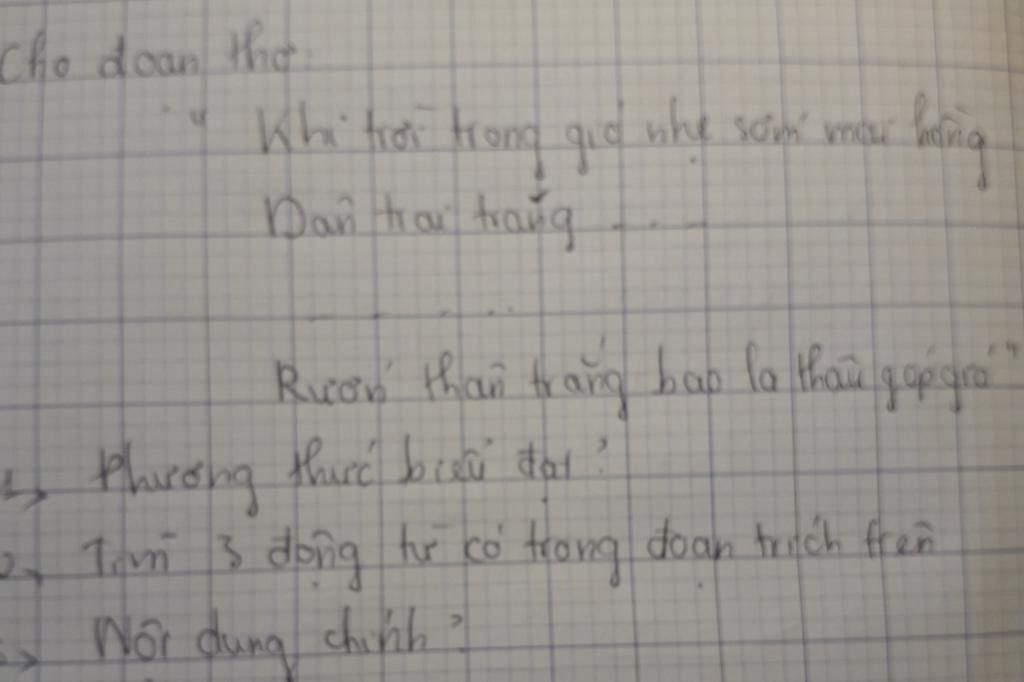 Cho đoạn thơ
" Khi trời trong gió nhẹ sớm mai hồng
Dân trai tráng ....
.....
Rướn thân trắng bao la thâu góp gió"
1, Phương thức biểu đạt ?
2, Tìm 3 động từ có trong đoạn trích trên
3, Nội dung chính ?